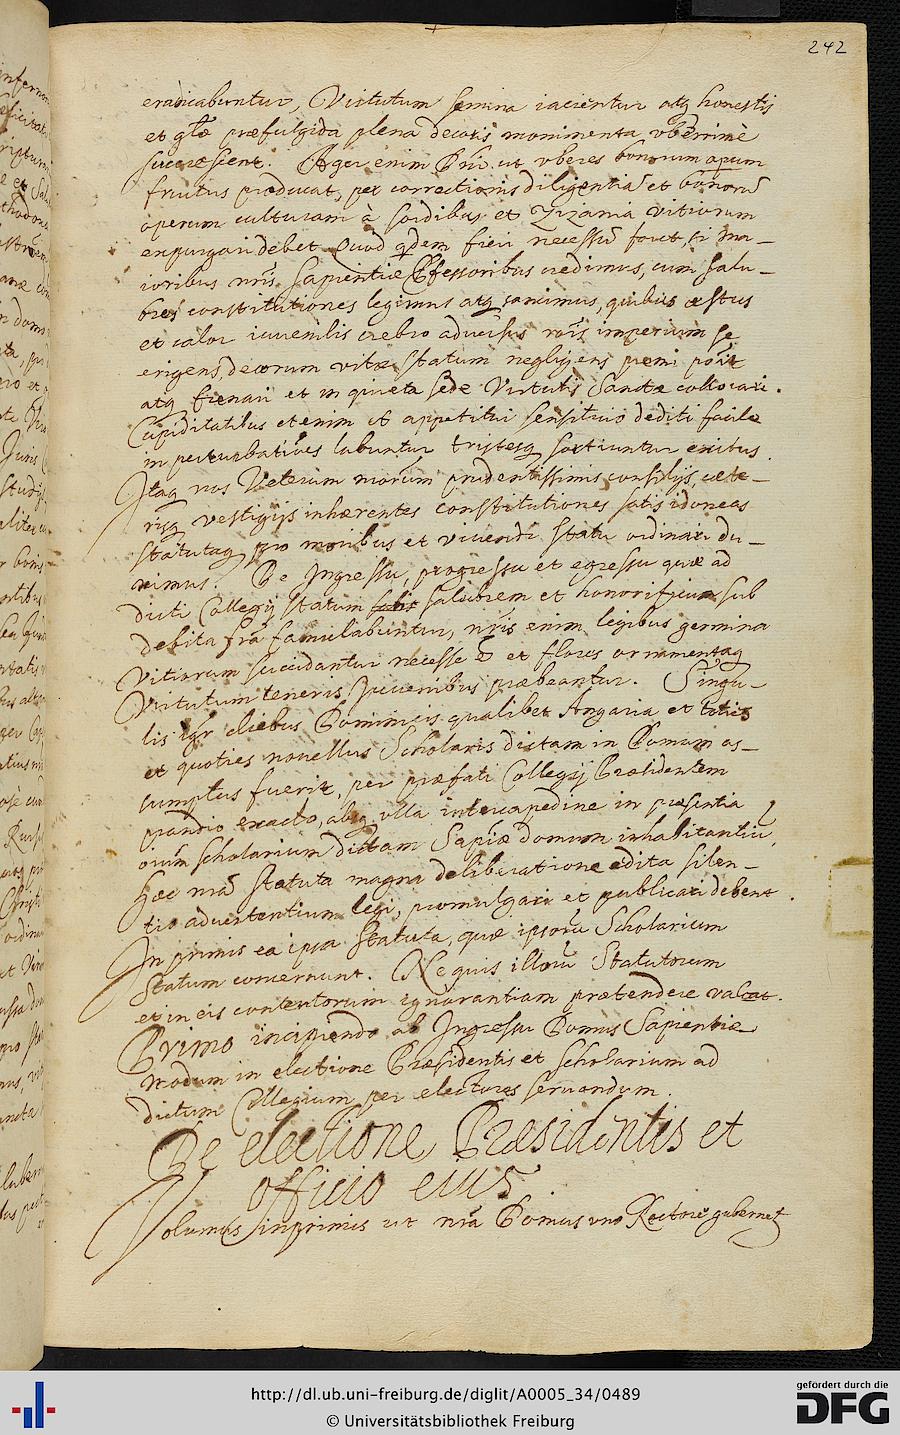 242
eradicabuntur, Virtutum semina iacientur atq honestis
et glæ præfulgida plena decoris monimenta vberrimè
succrescient. Ager enim Dni ut vberes bonorum opum
fructus producat, per correctionis diligentiā et bonorū
operum culturam à sordibus et Zizania vitiorum
expurgari debet. Quod qdem fieri necessū foret, si ma-
ioribus nris sapientiæ Pfessoribus credimus, cum salu-
bres constitutiones legimus atq sancimus, quibus æstus
et calor iuuenilis crebro aduersus rōis imperium se
erigens, decorum vitæ statum negligens premi possit
atq frenari et in quieta sede Virtutis Sanctæ collocari.
Cupiditatibus etenim et appetitui sensitiuo dediti facile
in perturbationes labuntur tristesq sortiuntur exitus.
Itaq nos Veterum morum prudentissimis consilijs, cete-
risq vestigijs inhærentes constitutiones satis idoneas
statutaq pro moribus et viuendi statu ordinari du-
ximus. De Ingressu, progressu et egressu quæ ad
dicti Collegij statum salubrem et honorificum sub
debita frā famulabuntur, nris enim legibus germina
Vitiorum succidantur necesse ē et flores ornamentaq
Virtutum teneris Iuuenibus præbeantur. Singu-
lis igr diebus Dominicis qualibet Angaria et toties
et quoties nouellus Scholaris dictam in Domum as-
sumptus fuerit, per præfati Collegij Præsidentem
prandio exacto, absq vlla intercapedine in præsentia
oīum scholarium dictam Sapīæ domum inhabitantiū,
hæc nrā statuta magna deliberatione edita silen-
tio aduertentium legi, promulgari et publicari debent.
In primis ea ipsa statuta, quæ ipsorū Scholarium
Statum concernunt. Ne quis illorū Statutorum
et in eis contentorum ignorantiam prætendere valeat.
Primo incipiendo ab Ingressu Domus Sapientiæ
modum in electione Præsidentis et scholarium ad
dictum Collegium per electores seruandum.
De electione Præsidentis et
officio eius
Volumus inprimis ut nrā Domus vno Rectore gubernet
http://dl.ub.uni-freiburg.de/diglit/A0005_34/0489
© Universitätsbibliothek Freiburg
gefördert durch die
DFG